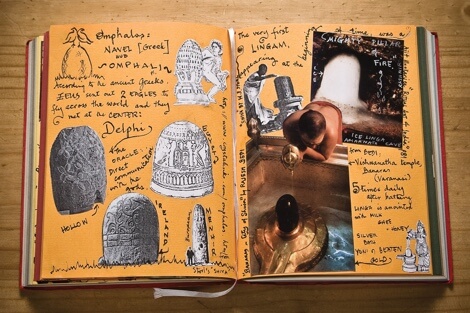 Omphalos:
NAVEL [Greek]
HUB
OMPHALI
According to the ancient Greeks
ZEUS sent out 2 EAGLES to
fly across the world and they
met at its CENTER:
Delphi
the
ORACLE:
Direct
communication
with the
Gods.
HOLLOW
IRELAND
MENHIR
The very first
LINGAM,
appearing at the beginning of time was a
MIGHTY PILLAR
of
FIRE
ICE LINGA
AMARNATH CAVE
from BEDI
Vishwanatha temple,
Banaras
(Varanasi)
5 times daily
after bathing
LINGA is anointed
with MILK
GHEE
HONEY
SILVER
BASE
YONI of BEATEN
GOLD
Banaras - City of Shiva by RAJESH BEDI